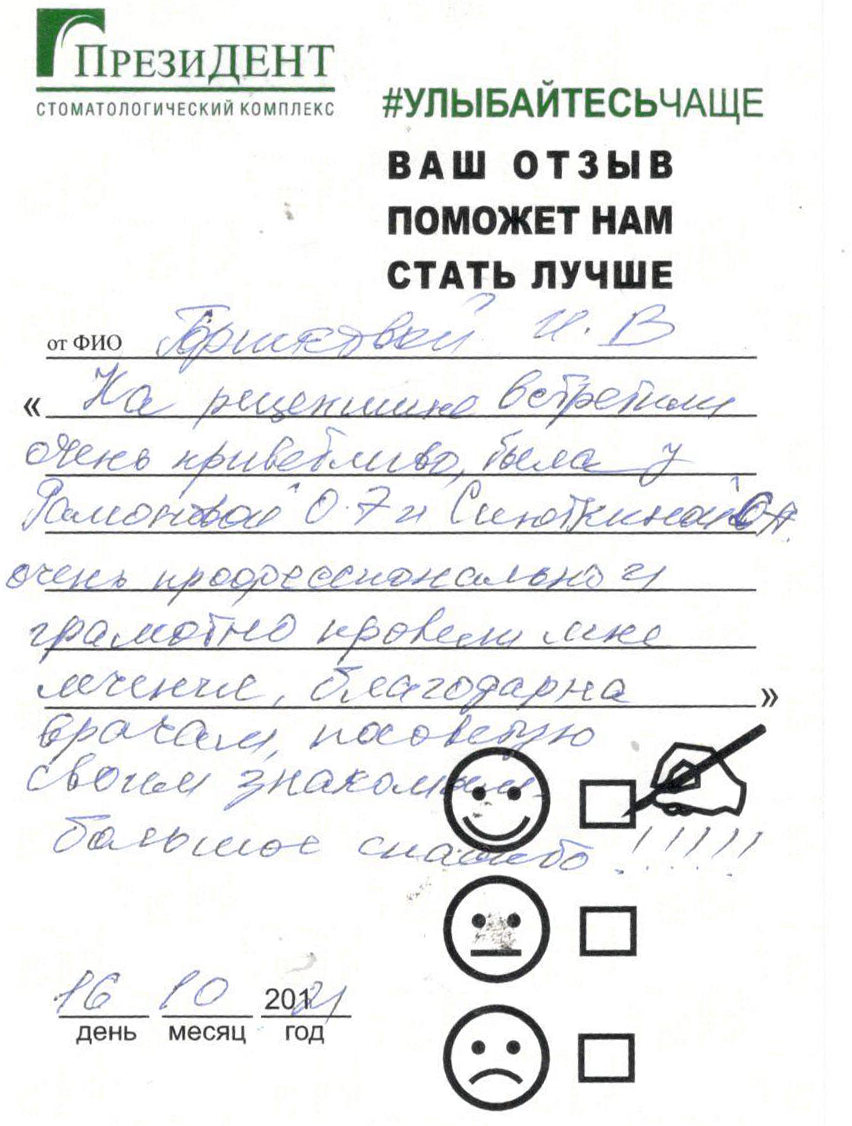 ПРЕЗИДЕНТ
СТОМАТОЛОГИЧЕСКИЙ КОМПЛЕКС
#УЛЫБАЙТЕСЬЧАЩЕ
ВАШ ОТЗЫВ
ПОМОЖЕТ НАМ
СТАТЬ ЛУЧШЕ
от ФИО Горшковой И. В
« На рецепшине встретили
очень приветливо, была у
О. и Сиюткиной
очень профессионально и
грамотно провели мне
лечение, благодарна »
врачам, посоветую
своим знакомым.
большое спасибо !!!!!!
16 10 2021
день месяц год